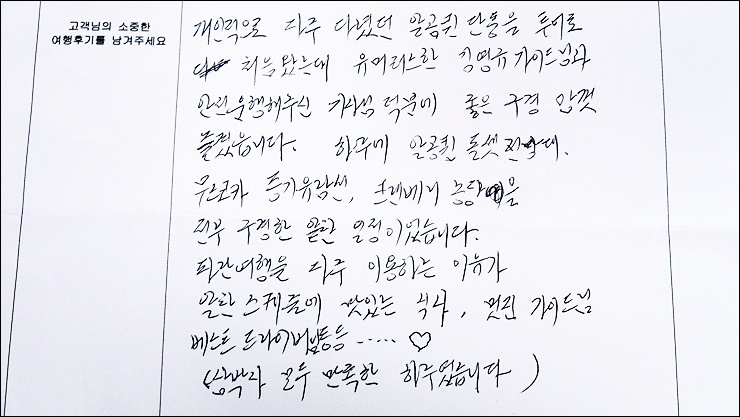 고객님의 소중한
여행후기를 남겨주세요
개인적으로 자주 다녔던 알공퀸 단풍을 투어로
처음 봤는데 유머러스한 김영규 가이드님과
안전운행해주신 기사님 덕분에 좋은 구경 맘껏
즐겼습니다. 하루에 알공퀸 돌셋 전망대,
무스코카 증기유람선, 크랜베리 농장을
전부 구경한 알찬 일정이었습니다.
파란여행을 자주 이용하는 이유가
알찬 스케줄에 맛있는 식사, 멋진 가이드님
베스트 드라이버님등등 ..... ♡
( 모두 만족한 하루였습니다 )